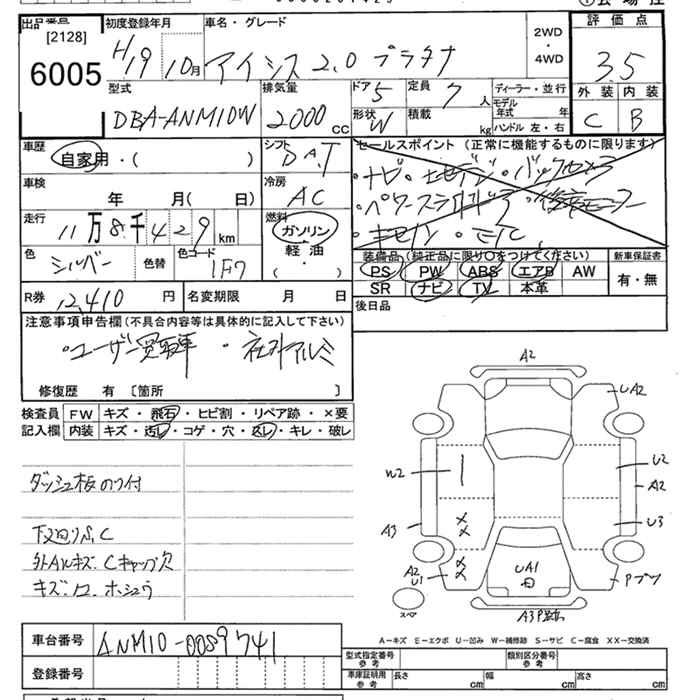 出品番号
[2128]
6005
初度登録年月
H19 10月
車名・グレード
アイシス 2.0 プラタナ
2WD
・
4WD
評価点
3.5
外装 内装
C B
型式
DBA-ANM10W
排気量
2000 cc
ドア 5
定員 7 人
形状 W
積載 kg
ディーラー・並行
モデル年式 年
ハンドル 左・右
車歴
自家用・( )
シフト
DAT
車検
年 月( )
冷房
AC
走行
11万8千429 km
燃料
ガソリン
軽油
( )
色
シルバー
色替
色コード
1F7
R券 12,410 円
名変期限 月 日
セールスポイント (正常に機能するものに限ります)
・ナビ・
・パワースライドドア
・キセノン・ETC
装備品 (純正品に限り○をつけてください)
新車保証書
PS PW ABS エアB AW
SR ナビ TV 本革
有・無
後日品
注意事項申告欄 (不具合内容等は具体的に記入して下さい)
・ユーザー買取車 ・社外アルミ
修復歴 有 〔箇所 〕
検査員 記入欄
FW キズ・飛石・ヒビ割・リペア跡・×要
内装 キズ・汚レ・コゲ・穴・スレ・キレ・破レ
ダッシュ板のり付
下廻りS.C
外ALキズ:Cキャップ欠
A2
UA2
W2
U2
A2
A3
U3
XX
XX
A2
U1
UA1
スペア
A3P
A-キズ E-エクボ U-凹み W-補修跡 S-サビ C-腐食 XX-交換済
車台番号 ANM10-0089741
登録番号
型式指定番号 参考
類別区分番号 参考
車庫証明用 参考 長さ cm 幅 cm 高さ cm